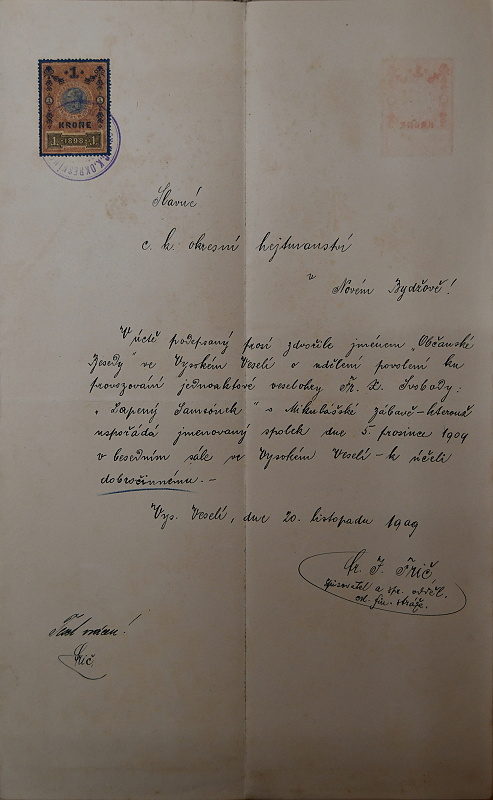 1
KRONE
1 1898 1
C.K. OKRESNÍ
Slavné
c. k. okresní hejtmanství
v
Novém Bydžově!
V úctě podepsaný prosí zdvořile jménem „Občanské
Besedy" ve Vysokém Veselí o udělení povolení ku
provozování jednoaktové veselohry Fr. X. Svobody:
„Lapený Samsónek" o Mikulášské zábavě – kterouž
uspořádá jmenovaný spolek dne 5. prosince 1909
v besedním sále ve Vysokém Veselí – k účeli
dobročinnému. –
Vys. Veselí, dne 20. listopadu 1909
Fr. J. Frič
a
fin. stráže.
Text vrácen!
Frič